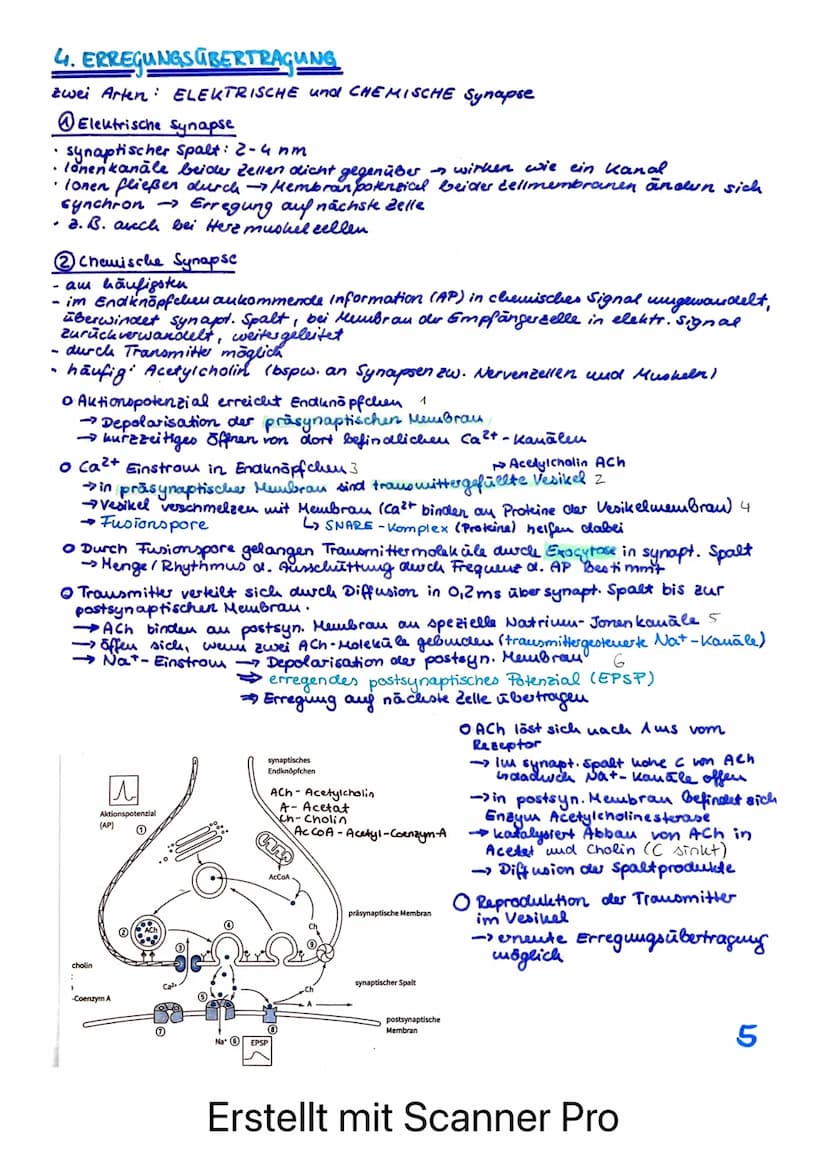 4. ERREGUNGSÜBERTRAGUNG
zwei Arten: ELEKTRISCHE und CHEMISCHE Synapse
① Elektrische Synapse
· synaptischer Spalt: 2-4 nm
· Ionenkanäle beider Zellen dicht gegenüber → wirken wie ein Kanal
· Ionen fließen durch → Membranpotenzial beider Zellmembranen ändern sich
synchron → Erregung auf nächste Zelle
· z.B. auch bei Herzmuskelzellen
② Chemische Synapse
- am häufigsten
- im Endknöpfchen ankommende Information (AP) in chemisches Signal umgewandelt,
überwindet synapt. Spalt, bei Membran der Empfängerzelle in elektr. Signal
zurückverwandelt, weitergeleitet
- durch Transmitter möglich
- häufig: Acetylcholin (bspw. an Synapsen zw. Nervenzellen und Muskeln)
o Aktionspotenzial erreicht Endknöpfchen 1
→ Depolarisation der präsynaptischen Membran
→ kurzzeitiges Öffnen von dort befindlichen Ca²⁺-Kanälen
o Ca²⁺ Einstrom in Endknöpfchen 3
↱ Acetylcholin ACh
→ in präsynaptischer Membran sind transmittergefüllte Vesikel 2
→ Vesikel verschmelzen mit Membran (Ca²⁺ binden an Proteine der Vesikelmembran) 4
→ Fusionspore ↳ SNARE-Komplex (Proteine) helfen dabei
o Durch Fusionspore gelangen Transmittermoleküle durch Exocytose in synapt. Spalt
→ Menge/Rhythmus d. Ausschüttung durch Frequenz d. AP bestimmt
o Transmitter verteilt sich durch Diffusion in 0,2ms über synapt. Spalt bis zur
postsynaptischen Membran.
→ ACh binden an postsyn. Membran an spezielle Natrium-Ionenkanäle 5
→ öffen sich, wenn zwei ACh-Moleküle gebunden (transmittergesteuerte Na⁺-Kanäle)
→ Na⁺-Einstrom → Depolarisation der postsyn. Membran 6
⇒ erregendes postsynaptisches Potenzial (EPSP)
⇒ Erregung auf nächste Zelle übertragen
o ACh löst sich nach 1ms vom
Rezeptor
→ Im synapt. Spalt hohe C von ACh
wodurch Na⁺-Kanäle offen
→ in postsyn. Membran befindet sich
Enzym Acetylcholinesterase
→ katalysiert Abbau von ACh in
Acetat und Cholin (C sinkt)
→ Diffusion der Spaltprodukte
o Reproduktion der Transmitter
im Vesikel
→ erneute Erregungsübertragung
möglich
synaptisches
Endknöpfchen
ACh - Acetylcholin
A - Acetat
Ch - Cholin
AcCoA - Acetyl-Coenzym-A
Aktionspotenzial
(AP) ①
AcCoA
präsynaptische Membran
② ACh
③
④
Ch
⑨
cholin
Ca²⁺
-Coenzym A
synaptischer Spalt
⑤
Ch
A
postsynaptische
Membran
⑦
⑧
Na⁺ ⑥ EPSP
5
Erstellt mit Scanner Pro